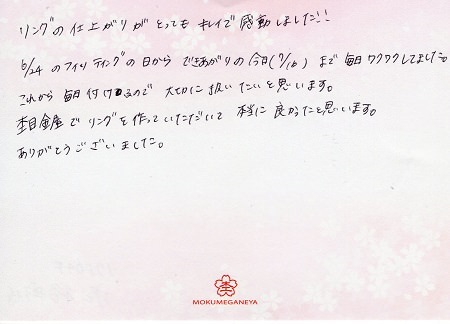 リングの仕上がりがとってもキレイで感動しました!!
6/24のフィッティングの日からできあがりの今日(9/16)まで毎日ワクワクしてました。
これから毎日付けるので大切に扱いたいと思います。
杢目金屋でリングを作っていただいて本当に良かったと思います。
ありがとうございました。
MOKUMEGANEYA